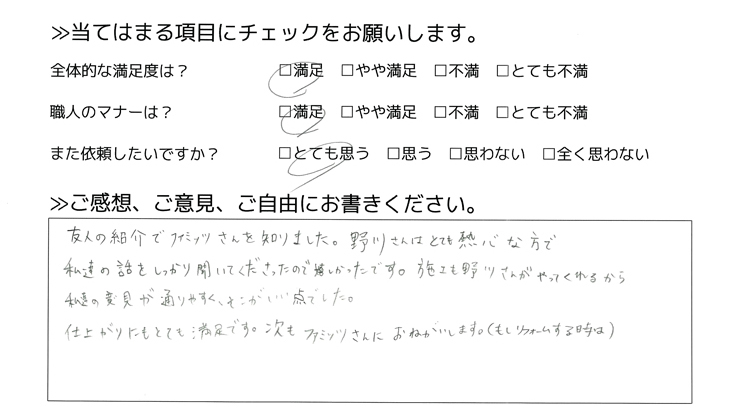 ≫当てはまる項目にチェックをお願いします。
全体的な満足度は？ □満足 □やや満足 □不満 □とても不満
職人のマナーは？ □満足 □やや満足 □不満 □とても不満
また依頼したいですか？ □とても思う □思う □思わない □全く思わない
≫ご感想、ご意見、ご自由にお書きください。
友人の紹介でファミッツさんを知りました。野川さんはとても熱心な方で
私達の話をしっかり聞いてくださったので嬉しかったです。施工も野川さんがやってくれるから
私達の意見が通りやすく、そこがいい点でした。
仕上がりにもとても満足です。次もファミッツさんにおねがいします。(もしリフォームする時は)